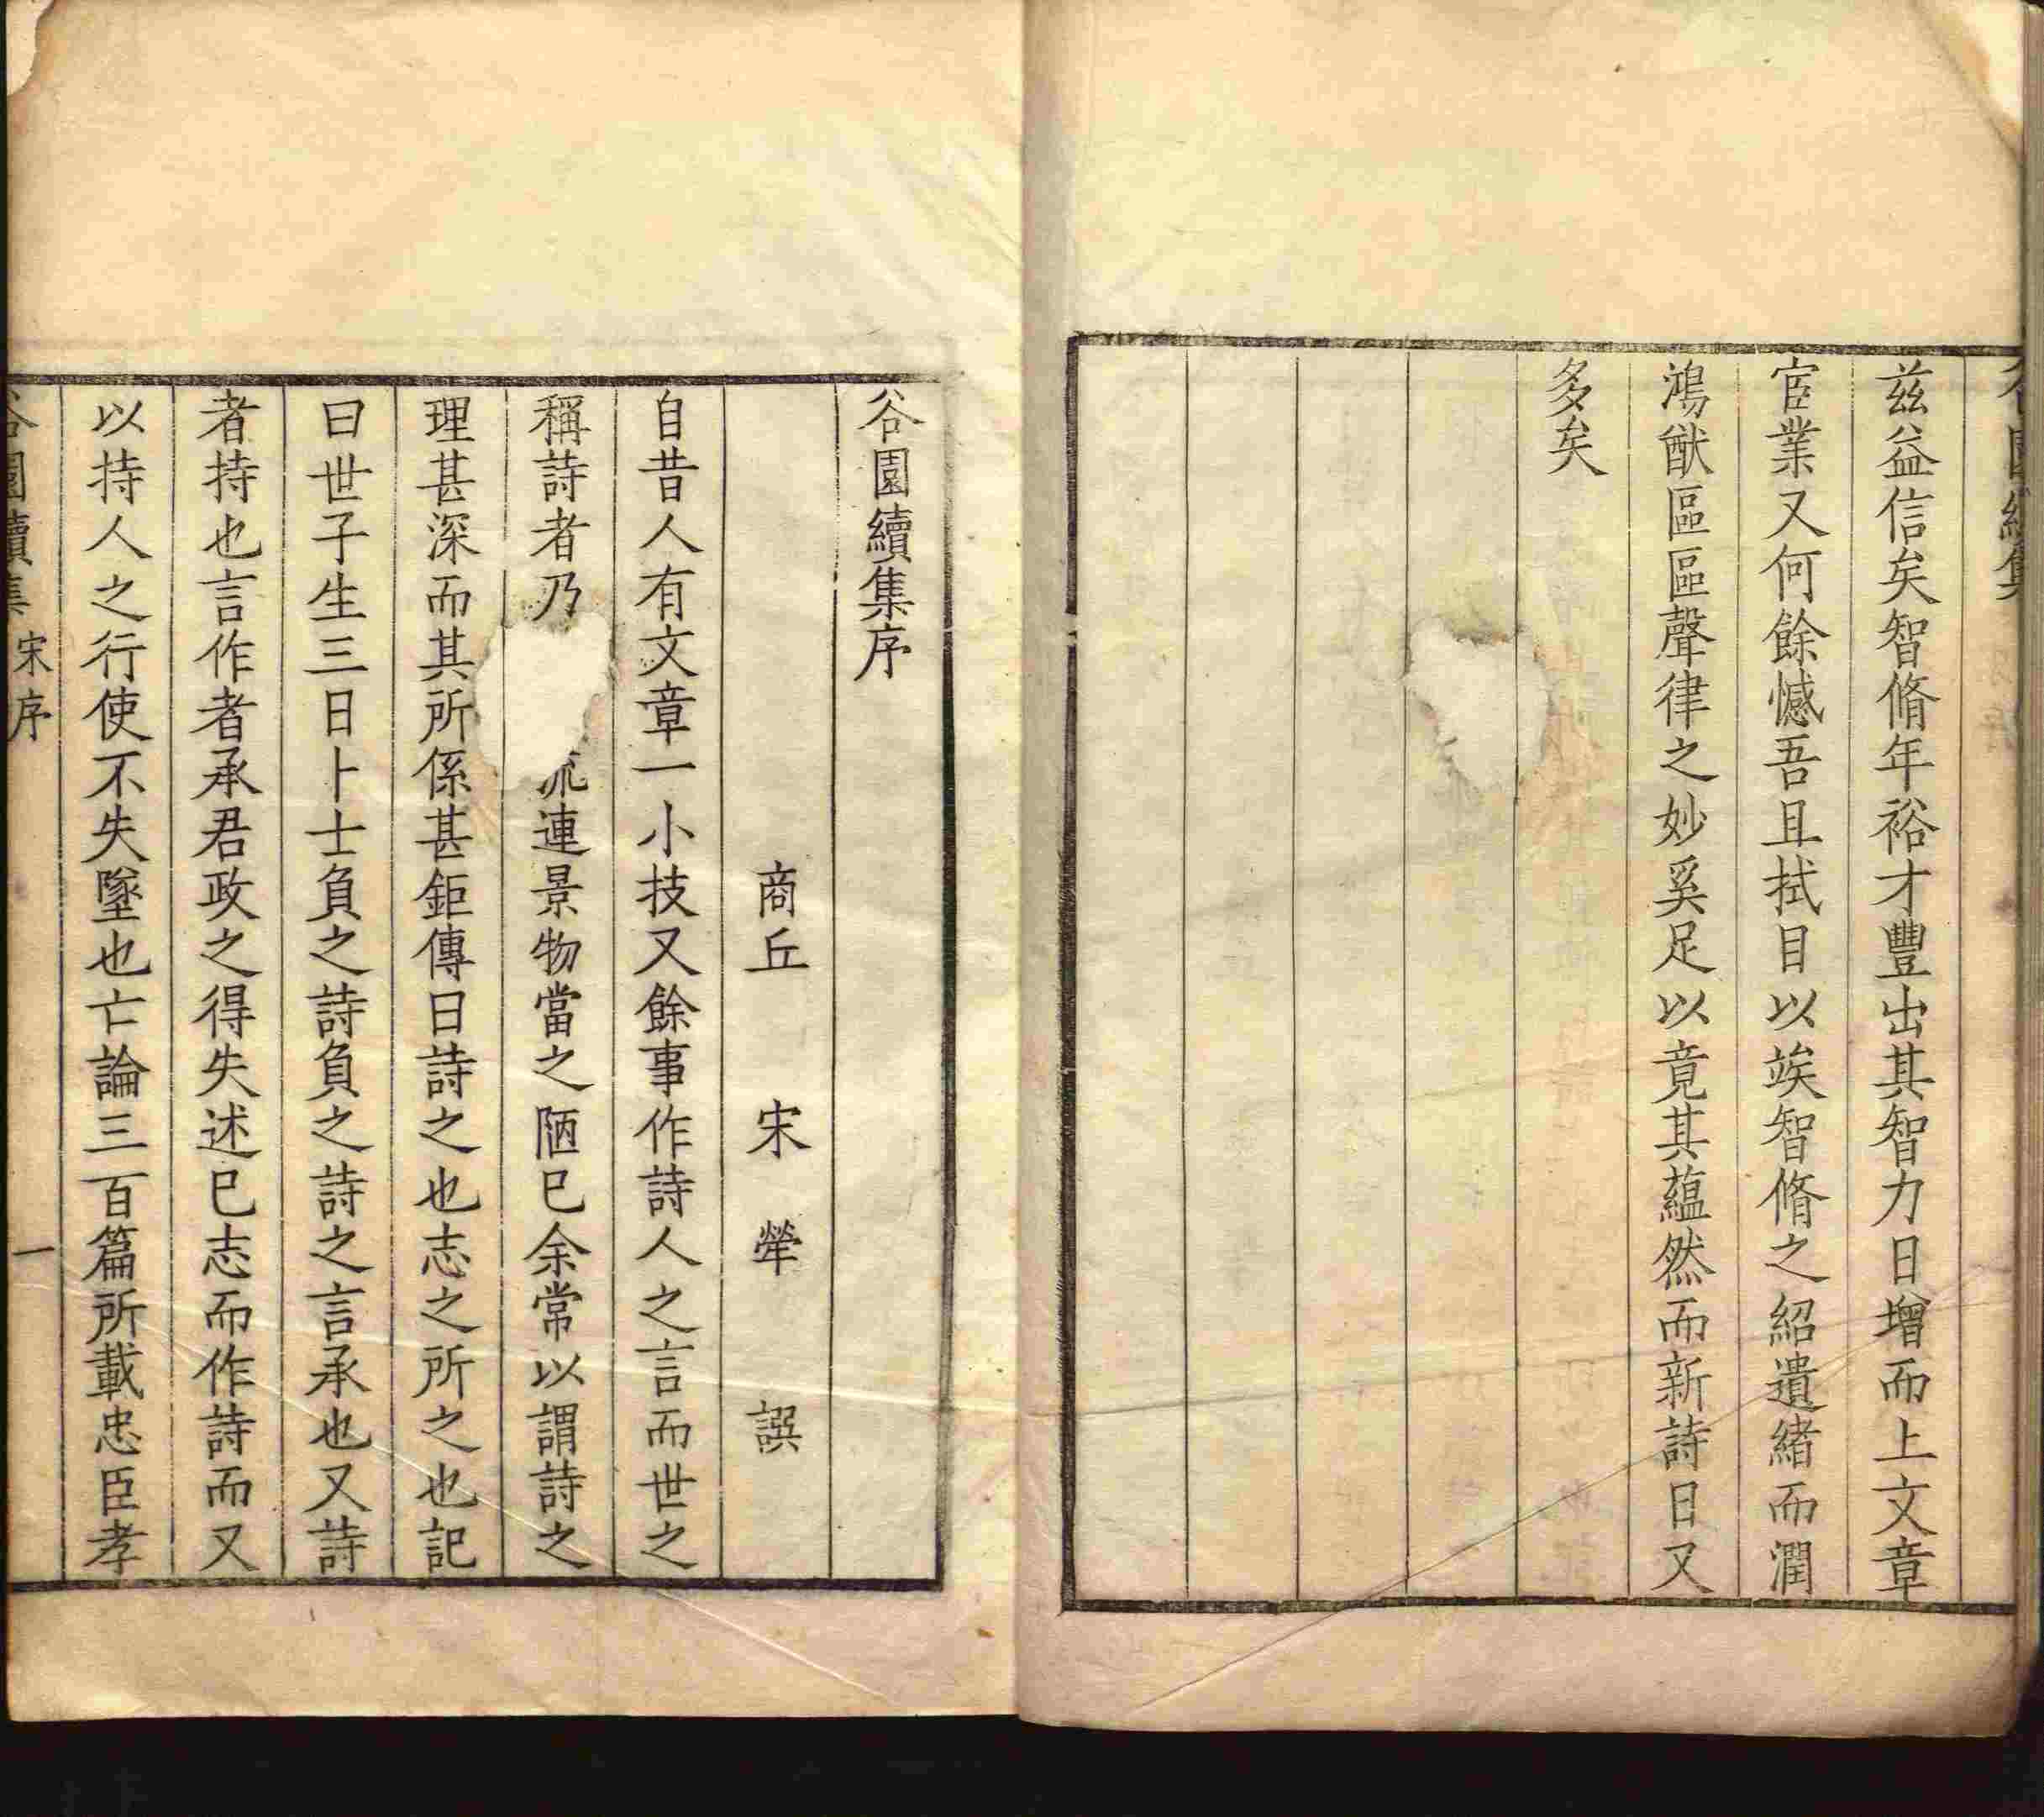 谷園續集
茲益信矣智脩年裕才豐出其智力日增而上文章
宦業又何餘憾吾且拭目以竢智脩之紹遺緒而潤
鴻猷區區聲律之妙奚足以竟其蘊然而新詩日又
多矣
谷園續集序
商丘 宋犖 譔
自昔人有文章一小技又餘事作詩人之言而世之
稱詩者乃流連景物當之陋已余常以謂詩之
理甚深而其所係甚鉅傳曰詩之也志之所之也記
曰世子生三日卜士負之詩負之詩之言承也又詩
者持也言作者承君政之得失述已志而作詩而又
以持人之行使不失墜也亡論三百篇所載忠臣孝
谷園續集 宋序 一